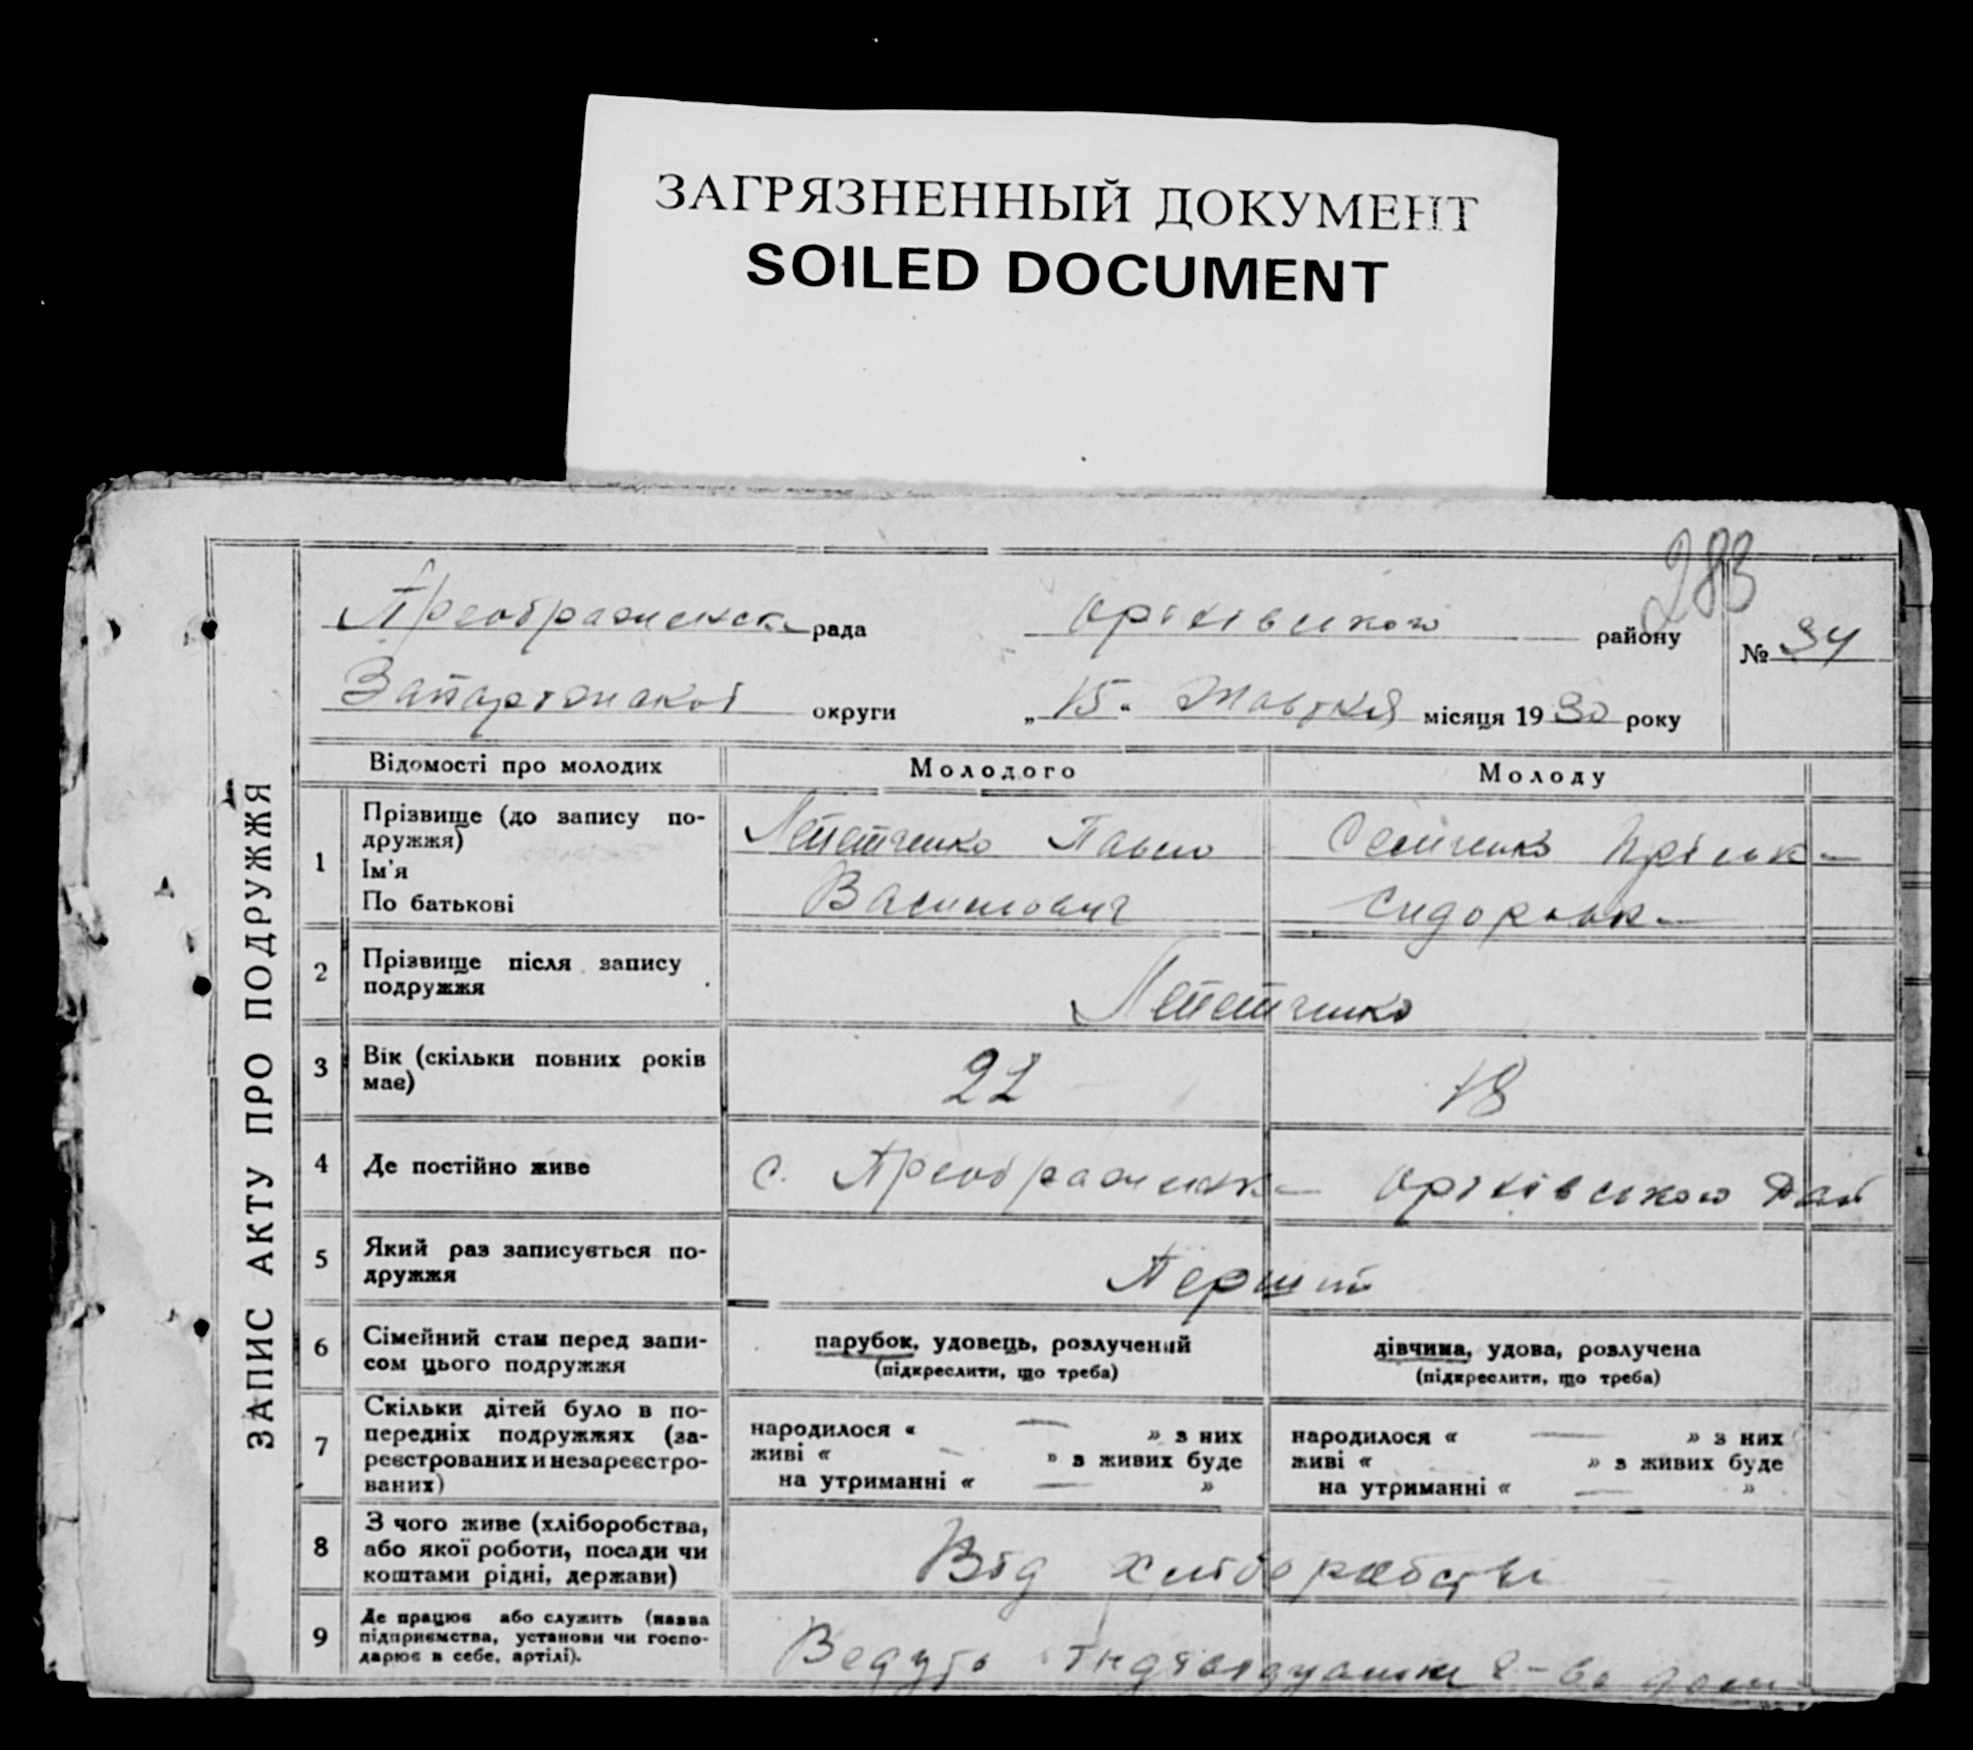 ЗАГРЯЗНЕННЫЙ ДОКУМЕНТ
SOILED DOCUMENT
283
ЗАПИС АКТУ ПРО ПОДРУЖЖЯ
Преображенска рада Оріхівського району № 34
Запорізької округи „15“ Жовтня місяця 1930 року
Відомості про молодих Молодого Молоду
1 Прізвище (до запису по-
дружжя)
Ім'я
По батькові
Лепетченко Павло
Василович
Семченко Пріська
Сидоровна
2 Прізвище після запису
подружжя
Лепетченко
3 Вік (скільки повних років
має)
22 18
4 Де постійно живе с. Преображенка Оріхівського Рай
5 Який раз записується по-
дружжя
Перший
6 Сімейний стан перед запи-
сом цього подружжя
парубок, удовець, розлучений
(підкреслити, що треба)
дівчина, удова, розлучена
(підкреслити, що треба)
7 Скільки дітей було в по-
передніх подружжях (за-
реєстрованих и незареєстро-
ваних)
народилося « — » з них
живі « — » з живих буде
на утриманні « — »
народилося « — » з них
живі « » з живих буде
на утриманні « — »
8 З чого живе (хліборобства,
або якої роботи, посади чи
коштами рідні, держави)
Від хліборобства
9 Де працює або служить (назва
підприємства, установи чи госпо-
дарює в себе, артілі).
Ведуть